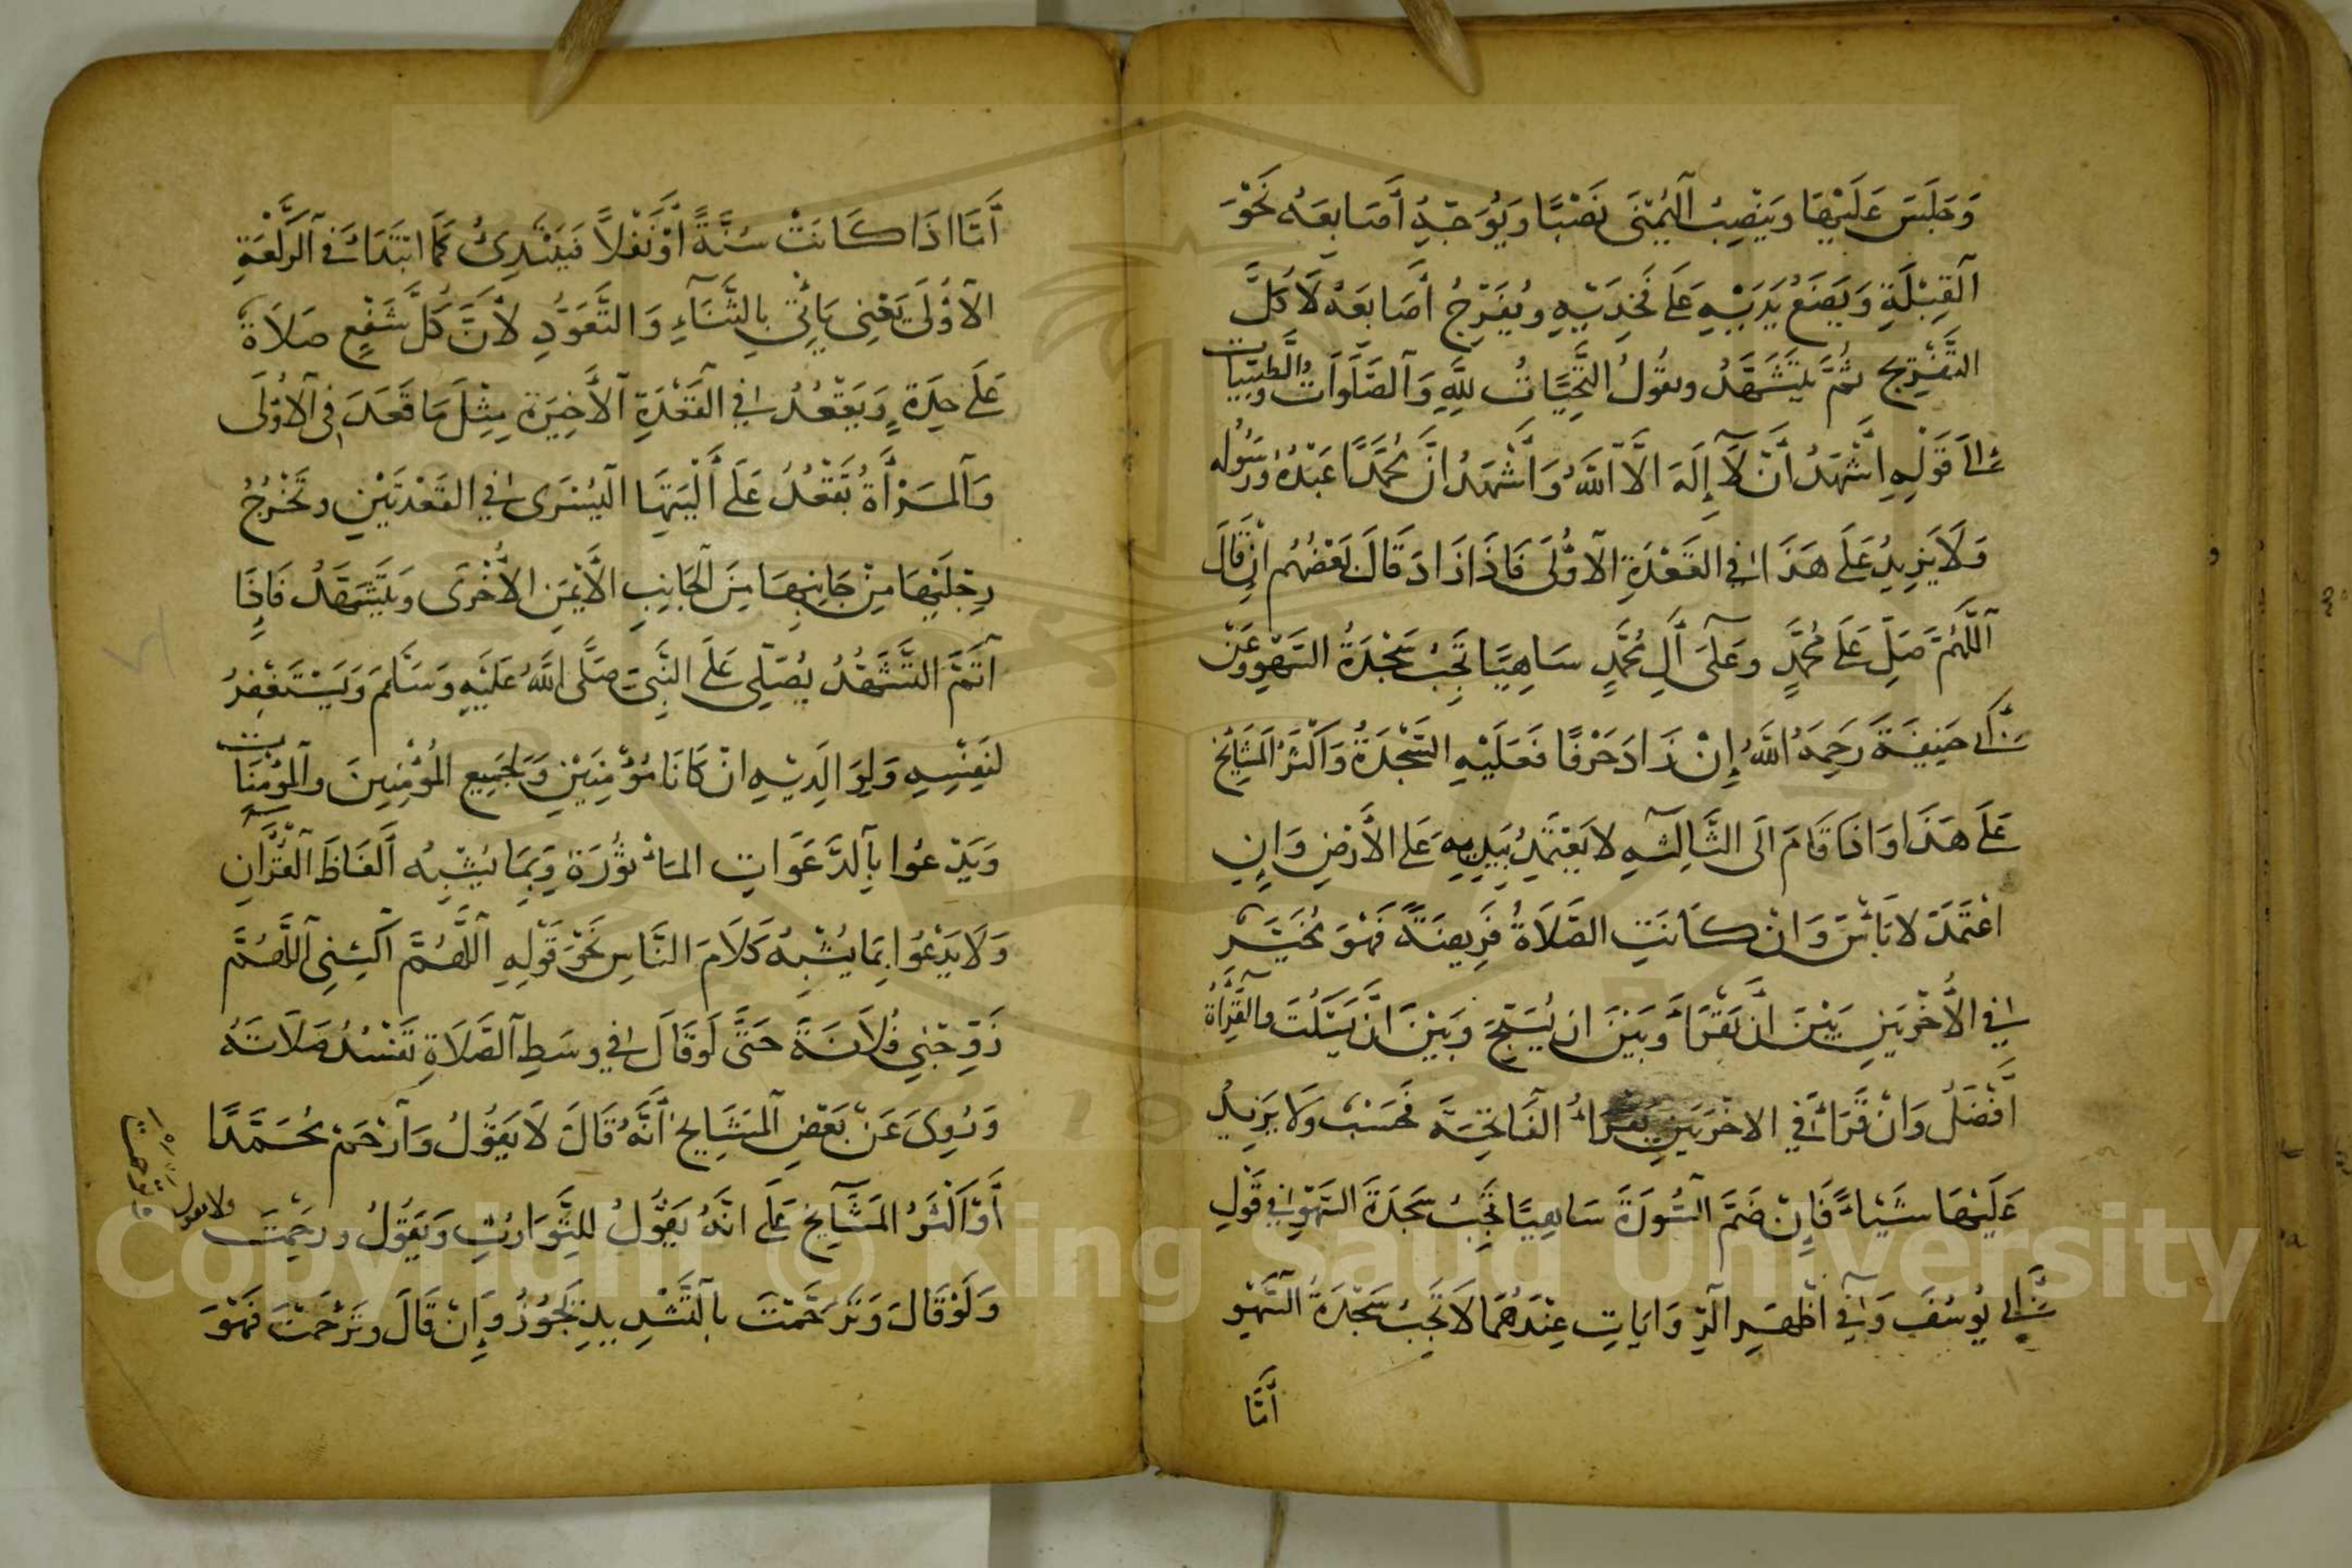 وَجَلَسَ عَلَيْهَا وَيَنْصِبُ الْيُمْنَى نَصْبًا وَيُوَجِّهُ أَصَابِعَهُ نَحْوَ
الْقِبْلَةِ وَيَضَعُ يَدَيْهِ عَلَى فَخِذَيْهِ وَيُفَرِّجُ أَصَابِعَهُ لَا كُلَّ
التَّفْرِيجِ ثُمَّ يَتَشَهَّدُ ويقُولُ التَّحِيَّاتُ لِلَّهِ وَالصَّلَوَاتُ وَالطَّيِّبَات
الَى قَوْلِهِ اَشْهَدُ أَنْ لَا إِلَهَ الَّا اللَّهُ وَاَشْهَدُ انَّ مُحَمَّدًا عَبْدُهُ وَرَسُولُه
وَلَا يَزِيدُ عَلَى هَذَا فِي القَعْدَةِ الْأُولَى فَاذَا زَادَ قَالَ بَعْضُهُم انْ قَالَ
اَللَّهُمَّ صَلِّ عَلَى مُحَمَّدٍ وعَلَى آلِ مُحَمَّدٍ سَاهِيًا تَجِبُ سَجْدَةُ السَّهْوِ وَعَنْ
أَبِي حَنِيفَةَ رَحِمَهُ اللَّهُ إِنْ زَادَ حَرْفًا فَعَلَيْهِ السَّجْدَةُ وَاَكْثَرُ الْمَشَايِخِ
عَلَى هَذَا وَاذَا قَامَ الَى الثَّالِثَهِ لَا يَعْتَمِدُ بِيَدِيهِ عَلَى الْأَرْضِ وَانِ
اعْتَمَدَ لَا بَأْسَ وَانْ كَانَتِ الصَّلَاةُ فَرِيضَةً فَهُوَ مُخَيَّر
فِي الْأُخْرَيَيْنِ بَيْنَ انْ يَقْرَأَ وَبَيْنَ ان يُسَبِّحَ وَبَيْنَ انْ يَسْكُتَ والْقِرَاَةُ
أَفْضَلُ وَانْ قَرَأَ فِي الاخْرَيَيْنِ يَقْرَاُ الْفَاتِحَةَ فَحَسْبُ وَلَا يَزِيدُ
عَلَيْهَا شَيْئًا فَإِنْ ضَمَّ السُّورَةَ سَاهِيًا تَجِبُ سَجْدَةُ السَّهْوِ فِي قَوْلِ
أَبِي يُوسُفَ وَفِي أَظْهَرِ الرِّوَايَاتِ عِنْدَهُمَا لَا تَجِبُ سَجْدَةُ السَّهْوِ
أَمَّا
أَمَّا اذَا كَانَتْ سُنَّةً أَوْ نَفْلًا فَيَبْتَدِئُ كَمَا ابْتَدَأَ فِي الرَّكْعَةِ
الْأُولَى يَعْنِي يَأْتِي بِالثَّنَاءِ وَالتَّعَوُّذِ لِأَنَّ كُلَّ شَفْعٍ صَلَاةٌ
عَلَى حِدَةٍ وَيَقْعُدُ فِي الْقَعْدَةِ الْأَخِيرَةِ مِثْلَ مَا قَعَدَ فِي الْأُولَى
وَالْمَرْأَةُ تَقْعُدُ عَلَى أَلْيَتِهَا الْيُسْرَى فِي الْقَعْدَتَيْنِ وتُخْرِجُ
رِجْلَيْهَا مِنْ جَانِبِهَا مِنَ الْجَانِبِ الْأَيْمَنِ الْأُخْرَى وَيَتَشَهَّدُ فَاِذَا
أَتَمَّ التَّشَهُّدُ يُصَلِّي عَلَى النَّبِيِّ صَلَّى اللَّهُ عَلَيْهِ وَسَلَّمَ وَيَسْتَغْفِرُ
لِنَفْسِهِ وَلِوَالِدَيْهِ انْ كَانَا مُؤْمِنَيْنِ وَلِجَمِيعِ الْمُؤْمِنِينَ والْمُؤْمِنَات
وَيَدْعُوا بِالدَّعَوَاتِ الْمَأْثُورَةِ وَبِمَا يُشْبِهُ أَلْفَاظَ الْقُرْآنِ
وَلَا يَدْعُوا بِمَا يُشْبِهُ كَلَامَ النَّاسِ نَحْوَ قَوْلِهِ اَللَّهُمَّ اكْسِنِي اَللَّهُمَّ
زَوِّجْنِي فُلَانَةَ حَتَّى لَوْ قَالَ فِي وسَطِ الصَّلَاةِ تَفْسُدُ صَلَاتَهُ
وَرُوِىَ عَنْ بَعْضِ الْمَشَايِخِ أَنَّهُ قَالَ لَا يَقُولُ وَارْحَمْ مُحَمَّدًا
وَأَكْثَرُ الْمَشَايِخِ عَلَى انَّهُ يَقُولُ لِلتَّوَارُثِ وَيَقُولُ ورَحِمْتَ ولا يقول
وَلَوْ قَالَ وَتَرَحَّمْتَ بِالتَّشْدِيدِ يَجُوزُ وَإِنْ قَالَ وتَرْحَمْتَ فَهُوَ
Copyright © King Saud University